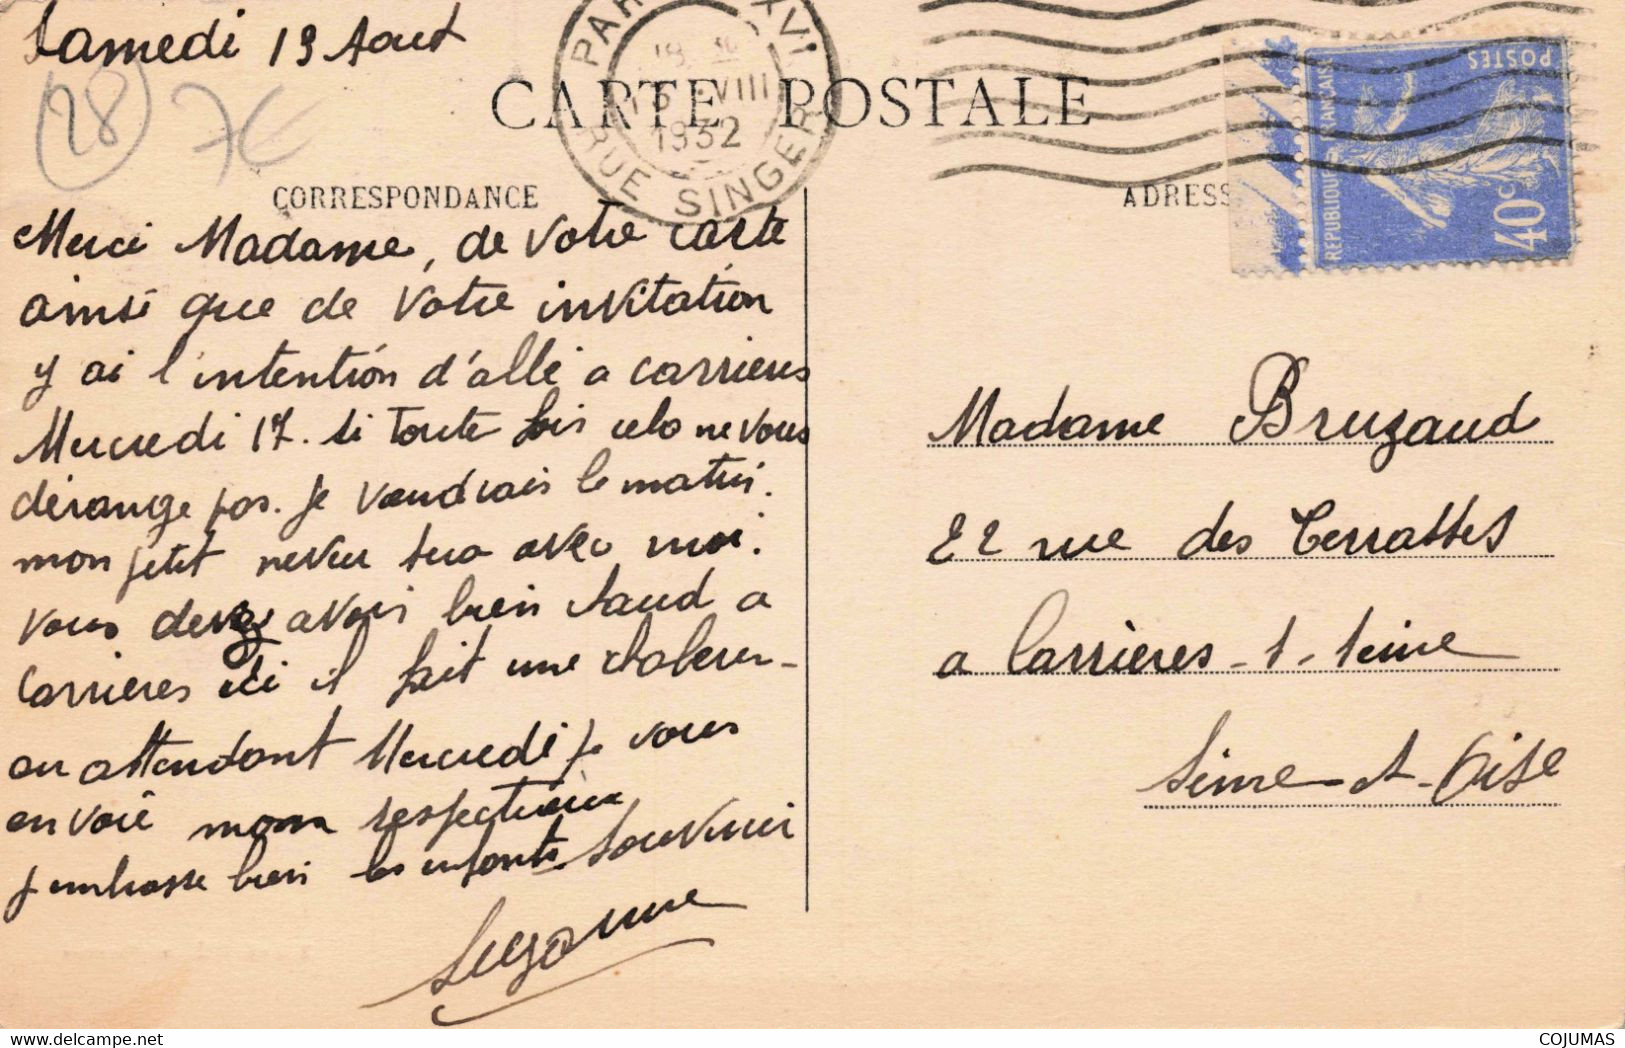 Samedi 13 Aout
28
7€
CARTE POSTALE
PARIS XVI
RUE SINGER
VIII
1932
POSTES
REPUBLIQUE FRANÇAISE
40c
CORRESPONDANCE
ADRESS
Merci Madame, de votre carte
ainsi que de votre invitation
y ai l'intention d'allé a carrieres
Mercredi 17. si toute fois cela ne vous
dérange pas. je vendrais le matin.
mon petit neveu sera avec moi.
vous devez avoir bien chaud a
Carrieres ici il fait une chaleur -
en attendant Mercredi je vous
envoie mon respectueux
souvenir
j embrasse bien les enfants
Suzanne
Madame Bruzaud
22 rue des Terrasses
a Carrières - s - Seine
Seine - et - Oise
COJUMAS